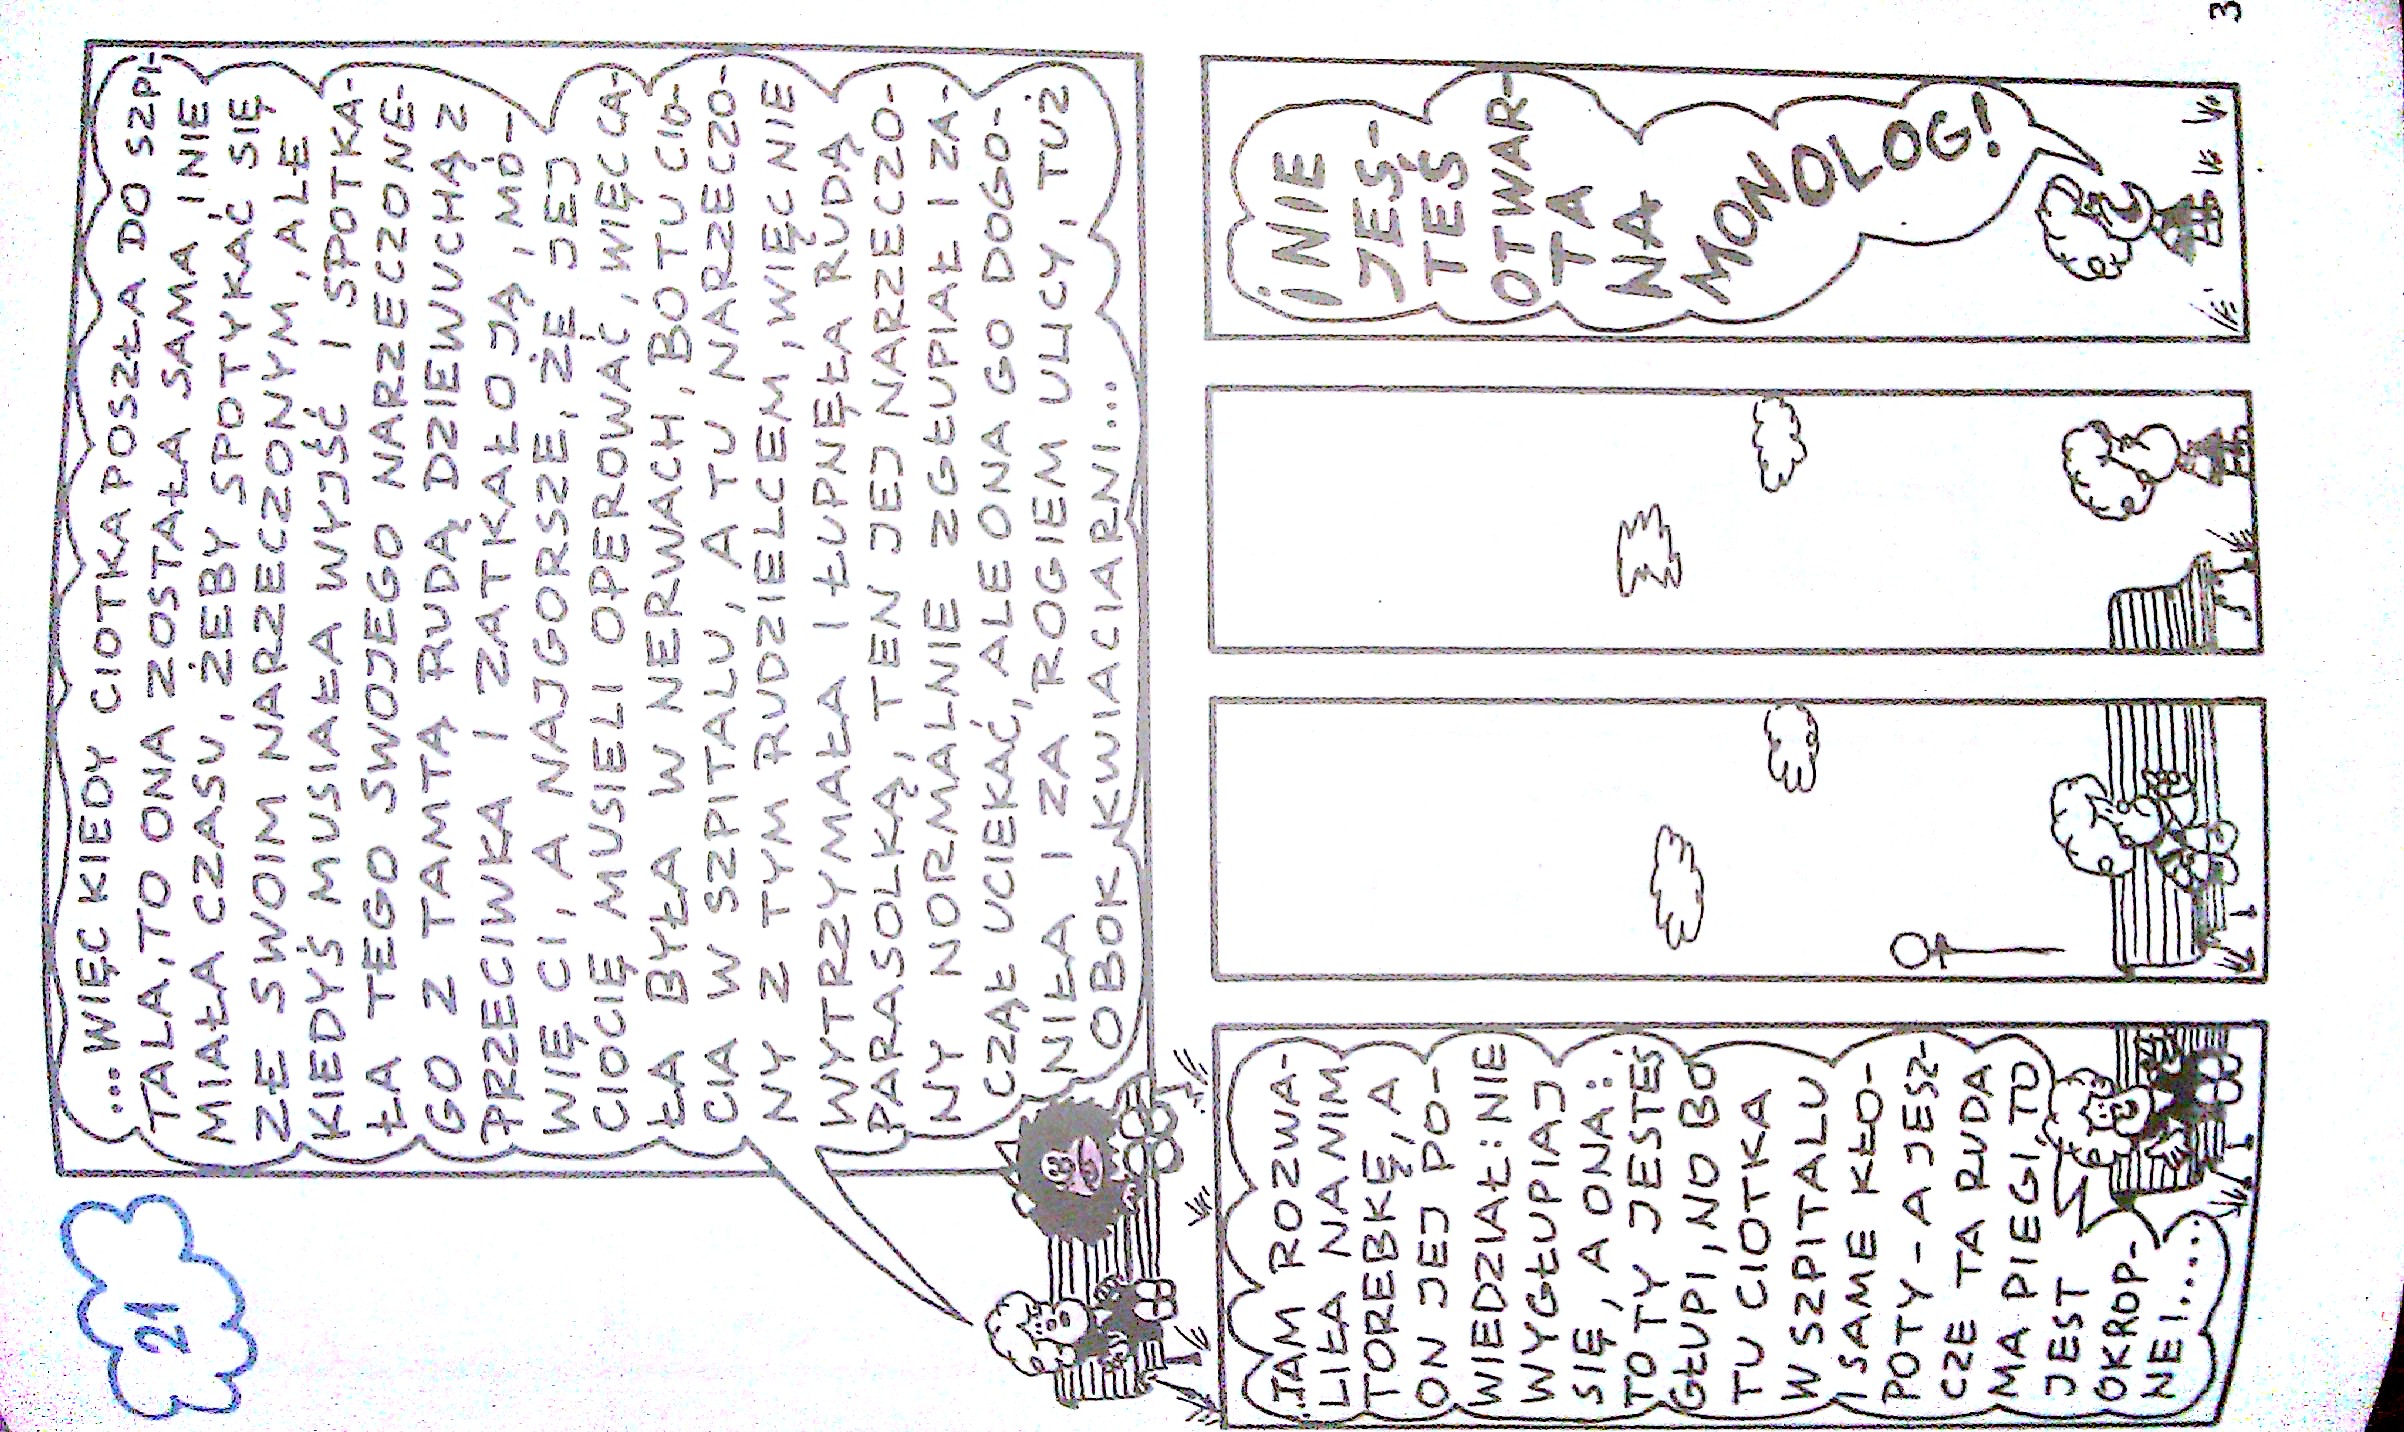 21
...WIĘC KIEDY CIOTKA POSZŁA DO SZPI-
TALA, TO ONA ZOSTAŁA SAMA I NIE
MIAŁA CZASU, ŻEBY SPOTYKAĆ SIĘ
ZE SWOIM NARZECZONYM, ALE
KIEDYŚ MUSIAŁA WYJŚĆ I SPOTKA-
ŁA TEGO SWOJEGO NARZECZONE-
GO Z TAMTĄ RUDĄ DZIEWUCHĄ Z
PRZECIWKA I ZATKAŁO JĄ, MÓ-
WIĘ CI, A NAJGORSZE, ŻE JEJ
CIOCIĘ MUSIELI OPEROWAĆ, WIĘC CA-
ŁA BYŁA W NERWACH, BO TU CIO-
CIA W SZPITALU, A TU NARZECZO-
NY Z TYM RUDZIELCEM, WIĘC NIE
WYTRZYMAŁA I ŁUPNĘŁA RUDĄ
PARASOLKĄ, TEN JEJ NARZECZO-
NY NORMALNIE ZGŁUPIAŁ I ZA-
CZĄŁ UCIEKAĆ, ALE ONA GO DOGO-
NIŁA I ZA ROGIEM ULICY, TUŻ
OBOK KWIACIARNI...
TAM ROZWA-
LIŁA NA NIM
TOREBKĘ, A
ON JEJ PO-
WIEDZIAŁ: NIE
WYGŁUPIAJ
SIĘ, A ONA:
TO TY JESTEŚ
GŁUPI, NO BO
TU CIOTKA
W SZPITALU
I SAME KŁO-
POTY - A JESZ-
CZE TA RUDA
MA PIEGI, TO
JEST
OKROP-
NE!....
NIE
JES-
TEŚ
OTWAR-
TA
NA
MONOLOG!
3